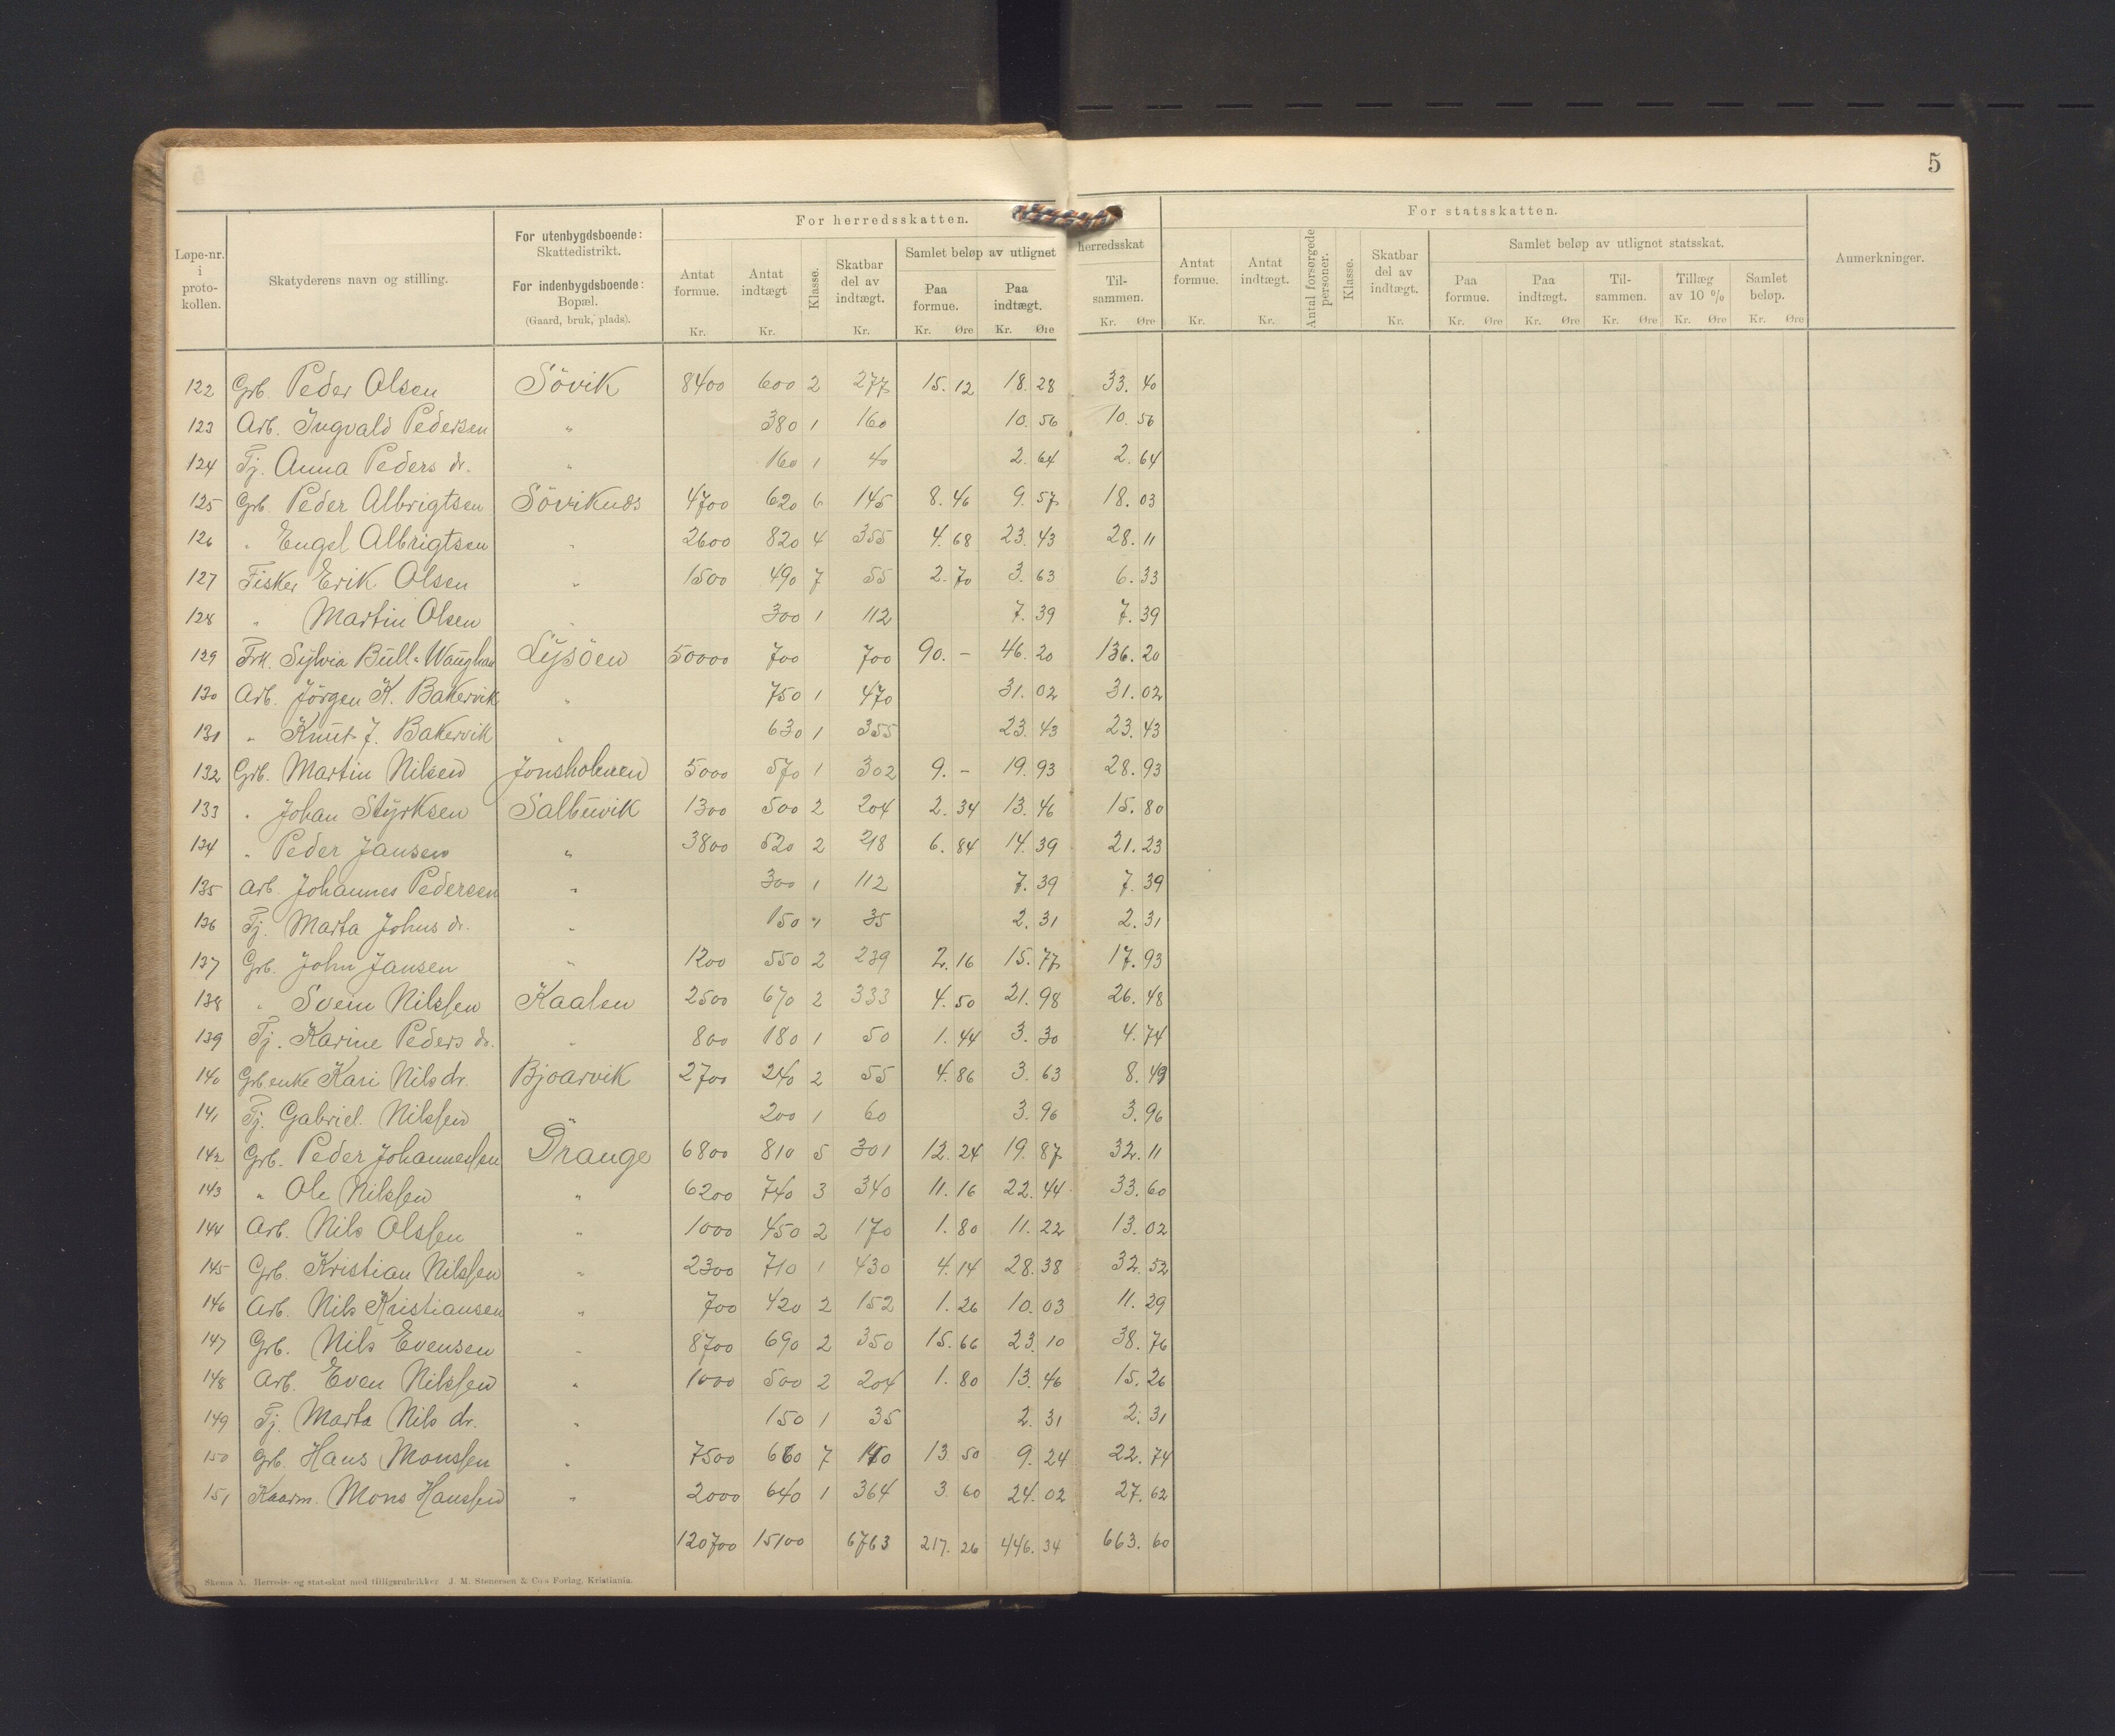 5
Løpe-nr. i proto-kollen.
Skatyderens navn og stilling.
For utenbygdsboende: Skattedistrikt.
For indenbygdsboende: Bopæl. (Gaard, bruk, plads).
For herredsskatten.
Antat formue. Kr.
Antat indtægt Kr.
Klasse.
Skatbar del av indtægt. Kr.
Samlet beløp av utlignet herredsskat
Paa formue. Kr. Øre
Paa indtægt. Kr. Øre
Til-sammen. Kr. Øre
For statsskatten.
Antat formue. Kr.
Antat indtægt. Kr.
Antal forsørgede personer.
Klasse.
Skatbar del av indtægt. Kr.
Samlet beløp av utlignet statsskat.
Paa formue. Kr. Øre
Paa indtægt. Kr. Øre
Til-sammen. Kr. Øre
Tillæg av 10 % Kr. Øre
Samlet beløp. Kr. Øre
Anmerkninger.
122 Grb. Peder Olsen Sövik 8400 600 2 277 15. 12 18. 28 33. 40
123 Arb. Ingvald Pedersen " 380 1 160 10. 56 10. 56
124 Tj. Anna Peders dr. " 160 1 40 2. 64 2. 64
125 Grb. Peder Albrigtsen Söviknds 4700 620 6 145 8. 46 9. 57 18. 03
126 " Engel Albrigtsen " 2600 820 4 355 4. 68 23. 43 28. 11
127 Fisker Erik Olsen " 1500 490 7 55 2. 70 3. 63 6. 33
128 " Martin Olsen " 300 1 112 7. 39 7. 39
129 Frk. Sylvia Bull-Waughan Lysöen 50000 700 700 90. - 46. 20 136. 20
130 Arb. Jörgen K. Bakervik " 750 1 470 31. 02 31. 02
131 " Knut J. Bakervik " 630 1 355 23. 43 23. 43
132 Grb. Martin Nilsen Jonsholmen 5000 570 1 302 9. - 19. 93 28. 93
133 " Johan Styrksen Salbuvik 1300 500 2 204 2. 34 13. 46 15. 80
134 " Peder Jansen " 3800 520 2 218 6. 84 14. 39 21. 23
135 Arb. Johannes Pedersen " 300 1 112 7. 39 7. 39
136 Tj. Marta Johns dr. " 150 1 35 2. 31 2. 31
137 Grb. John Jansen " 1200 550 2 239 2. 16 15. 77 17. 93
138 " Svein Nilssen Kaalen 2500 670 2 333 4. 50 21. 98 26. 48
139 Tj. Karine Peders dr. " 800 180 1 50 1. 44 3. 30 4. 74
140 Grb enke Kari Nils dr. Bjoarvik 2700 240 2 55 4. 86 3. 63 8. 49
141 Tj. Gabriel Nilssen " 200 1 60 3. 96 3. 96
142 Grb. Peder Johannessen Drange 6800 810 5 301 12. 24 19. 87 32. 11
143 " Ole Nilssen " 6200 740 3 340 11. 16 22. 44 33. 60
144 Arb. Nils Olssen " 1000 450 2 170 1. 80 11. 22 13. 02
145 Grb. Kristian Nilssen " 2300 710 1 430 4. 14 28. 38 32. 52
146 Arb. Nils Kristiansen " 700 420 2 152 1. 26 10. 03 11. 29
147 Grb. Nils Evensen " 8700 690 2 350 15. 66 23. 10 38. 76
148 Arb. Even Nilssen " 1000 500 2 204 1. 80 13. 46 15. 26
149 Tj. Marta Nils dr. " 150 1 35 2. 31 2. 31
150 Grb. Hans Monssen " 7500 660 7 140 13 50 9. 24 22. 74
151 Kaarm. Mons Hanssen " 2000 640 1 364 3. 60 24. 02 27. 62
120700 15100 6763 217. 26 446. 34 663. 60
Skema A. Herreds- og statsskat med tilligsrubrikker J. M. Stenersen & Co.s Forlag, Kristiania.